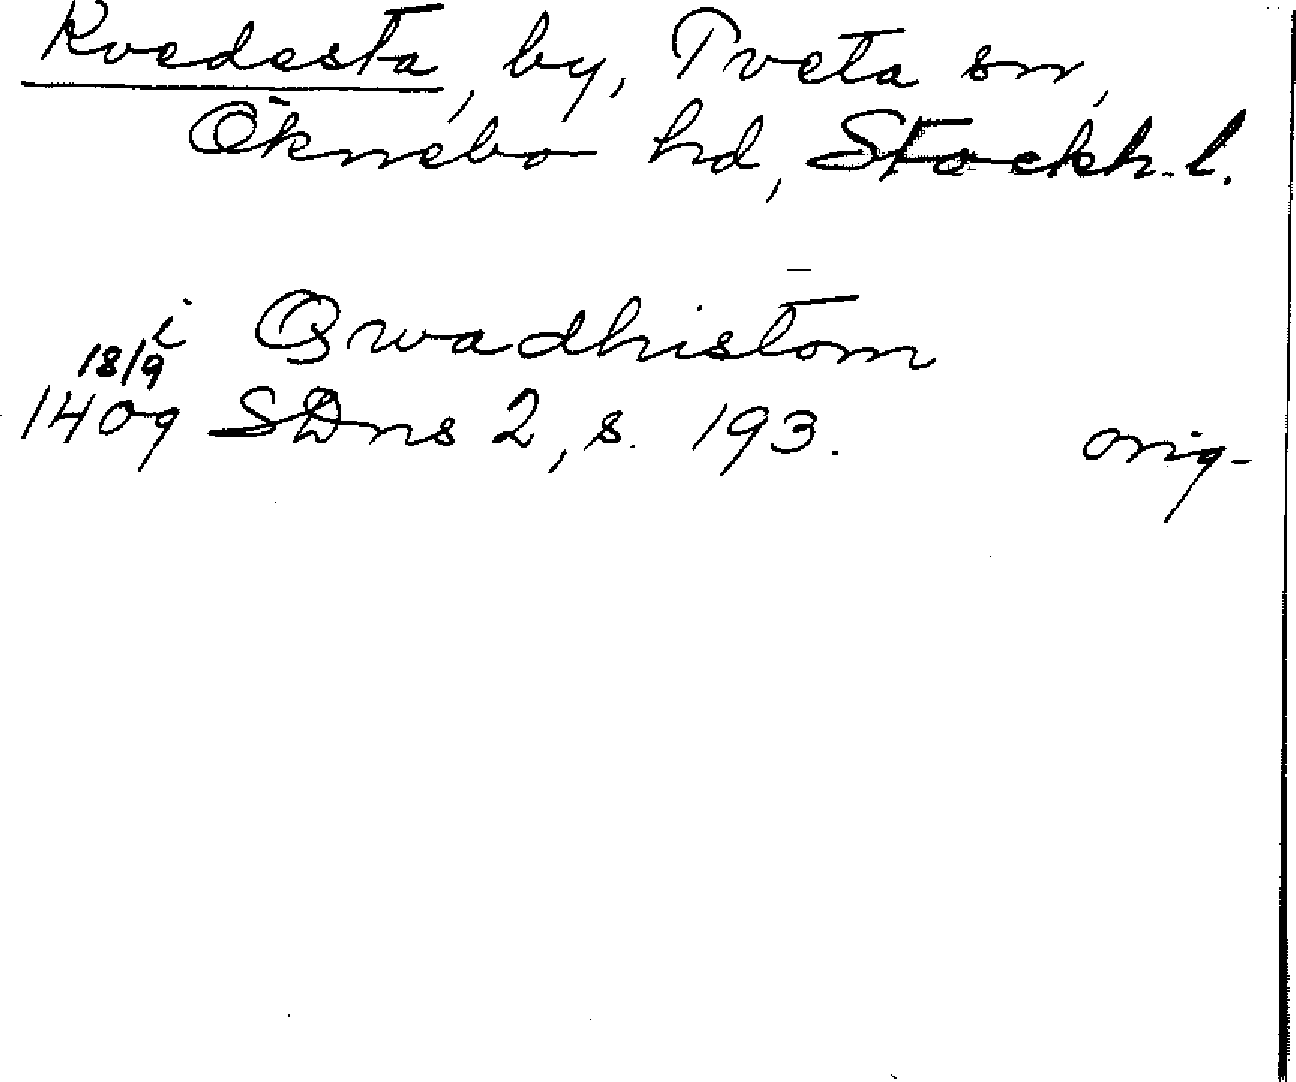 Kvedesta, by, Tveta sn,
Öknebo hd, Stockh. l.
i Qwadhistom
18/9
1409 SDns 2, s. 193. orig.